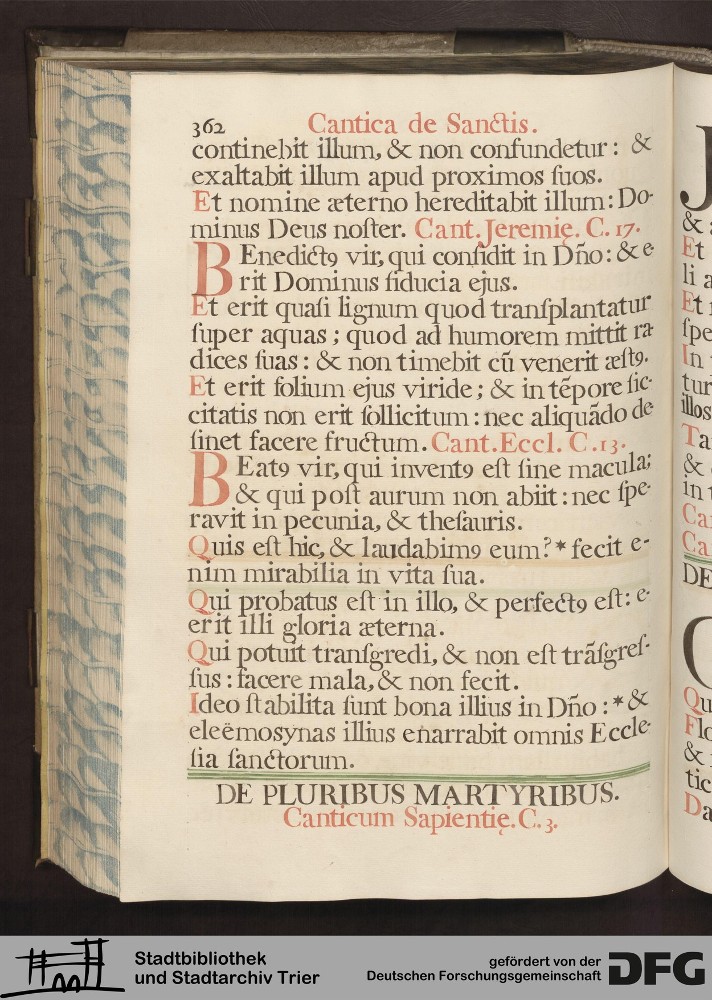 362 Cantica de Sanctis.
continebit illum, & non confundetur: &
exaltabit illum apud proximos ſuos.
Et nomine æterno hereditabit illum: Do-
minus Deus noſter. Cant. Jeremię. C. 17.
BEnedictꝯ vir, qui confidit in Dño: & e-
rit Dominus fiducia ejus.
Et erit quaſi lignum quod tranſplantatur
ſuper aquas; quod ad humorem mittit ra-
dices ſuas: & non timebit cū venerit æſtꝯ.
Et erit folium ejus viride; & in tēpore ſic-
citatis non erit ſollicitum: nec aliquãdo de-
ſinet facere fructum. Cant. Eccl. C. 13.
BEatꝯ vir, qui inventꝯ eſt ſine macula;
& qui poſt aurum non abiit: nec ſpe-
ravit in pecunia, & theſauris.
Quis eſt hic, & laudabimꝯ eum? * fecit e-
nim mirabilia in vita ſua.
Qui probatus eſt in illo, & perfectꝯ eſt: e-
erit illi gloria æterna.
Qui potuit tranſgredi, & non eſt trãſgreſ-
ſus: facere mala, & non fecit.
Ideo ſtabilita ſunt bona illius in Dño: * &
eleëmosynas illius enarrabit omnis Eccle-
ſia ſanctorum.
DE PLURIBUS MARTYRIBUS.
Canticum Sapientię. C. 3.
& 
Et
li
Et
ſpe
In
tur
illos
Ta
&
in
Ca
Ca
DE
Qu
Flo
&
tic
Da
Stadtbibliothek
und Stadtarchiv Trier
gefördert von der
Deutschen Forschungsgemeinschaft
DFG